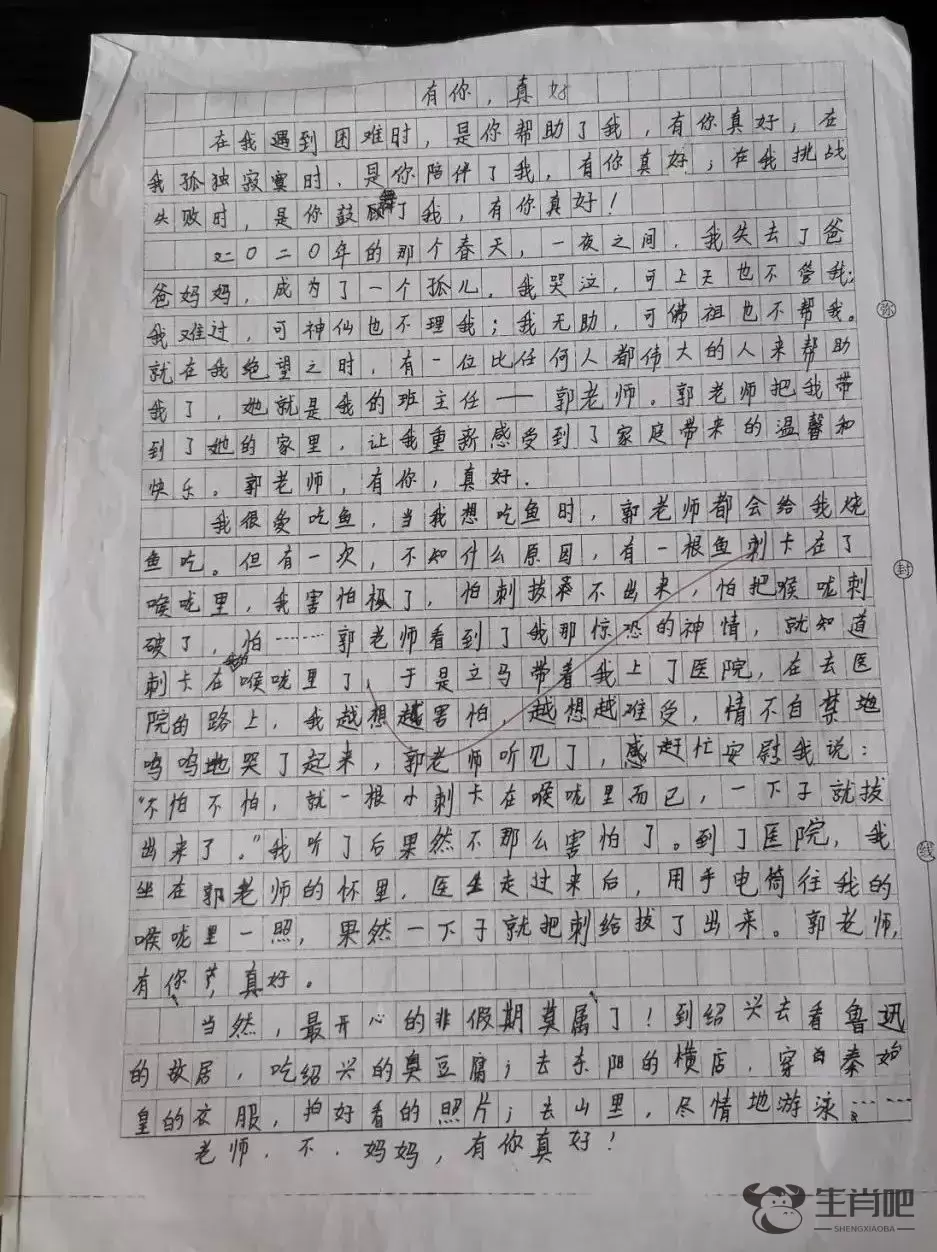 有你，真好
在我遇到困难时，是你帮助了我，有你真好，在
我孤独寂寞时，是你陪伴了我，有你真好；在我挑战
失败时，是你鼓舞了我，有你真好！
二0二0年的那个春天，一夜之间，我失去了爸
爸妈妈，成为了一个孤儿。我哭泣，可上天也不管我；
我难过，可神仙也不理我；我无助，可佛祖也不帮我。
就在我绝望之时，有一位比任何人都伟大的人来帮助
我了，她就是我的班主任——郭老师。郭老师把我带
到了她的家里，让我重新感受到了家庭带来的温馨和
快乐。郭老师，有你，真好．
我很爱吃鱼，当我想吃鱼时，郭老师都会给我烧
鱼吃。但有一次，不知什么原因，有一根鱼刺卡在了
喉咙里，我害怕极了，怕刺拔不出来，怕把喉咙刺
破了，怕……郭老师看到了我那惊恐的神情，就知道
刺卡在喉咙里了，于是立马带着我上了医院，在去医
院的路上，我越想越害怕，越想越难受，情不自禁地
呜呜地哭了起来，郭老师听见了，赶忙安慰我说：
“不怕不怕，就一根小刺卡在喉咙里而已，一下子就拔
出来了。”我听了后果然不那么害怕了。到了医院，我
坐在郭老师的怀里，医生走过来后，用手电筒往我的
喉咙里一照，果然一下子就把刺给拔了出来。郭老师，
有你，真好。
当然，最开心的非假期莫属了！到绍兴去看鲁迅
的故居，吃绍兴的臭豆腐；去东阳的横店，穿秦始
皇的衣服，拍好看的照片；去山里，尽情地游泳……
老师．不．妈妈，有你真好！
弥
封
线
生肖吧
SHENGXIAOBA